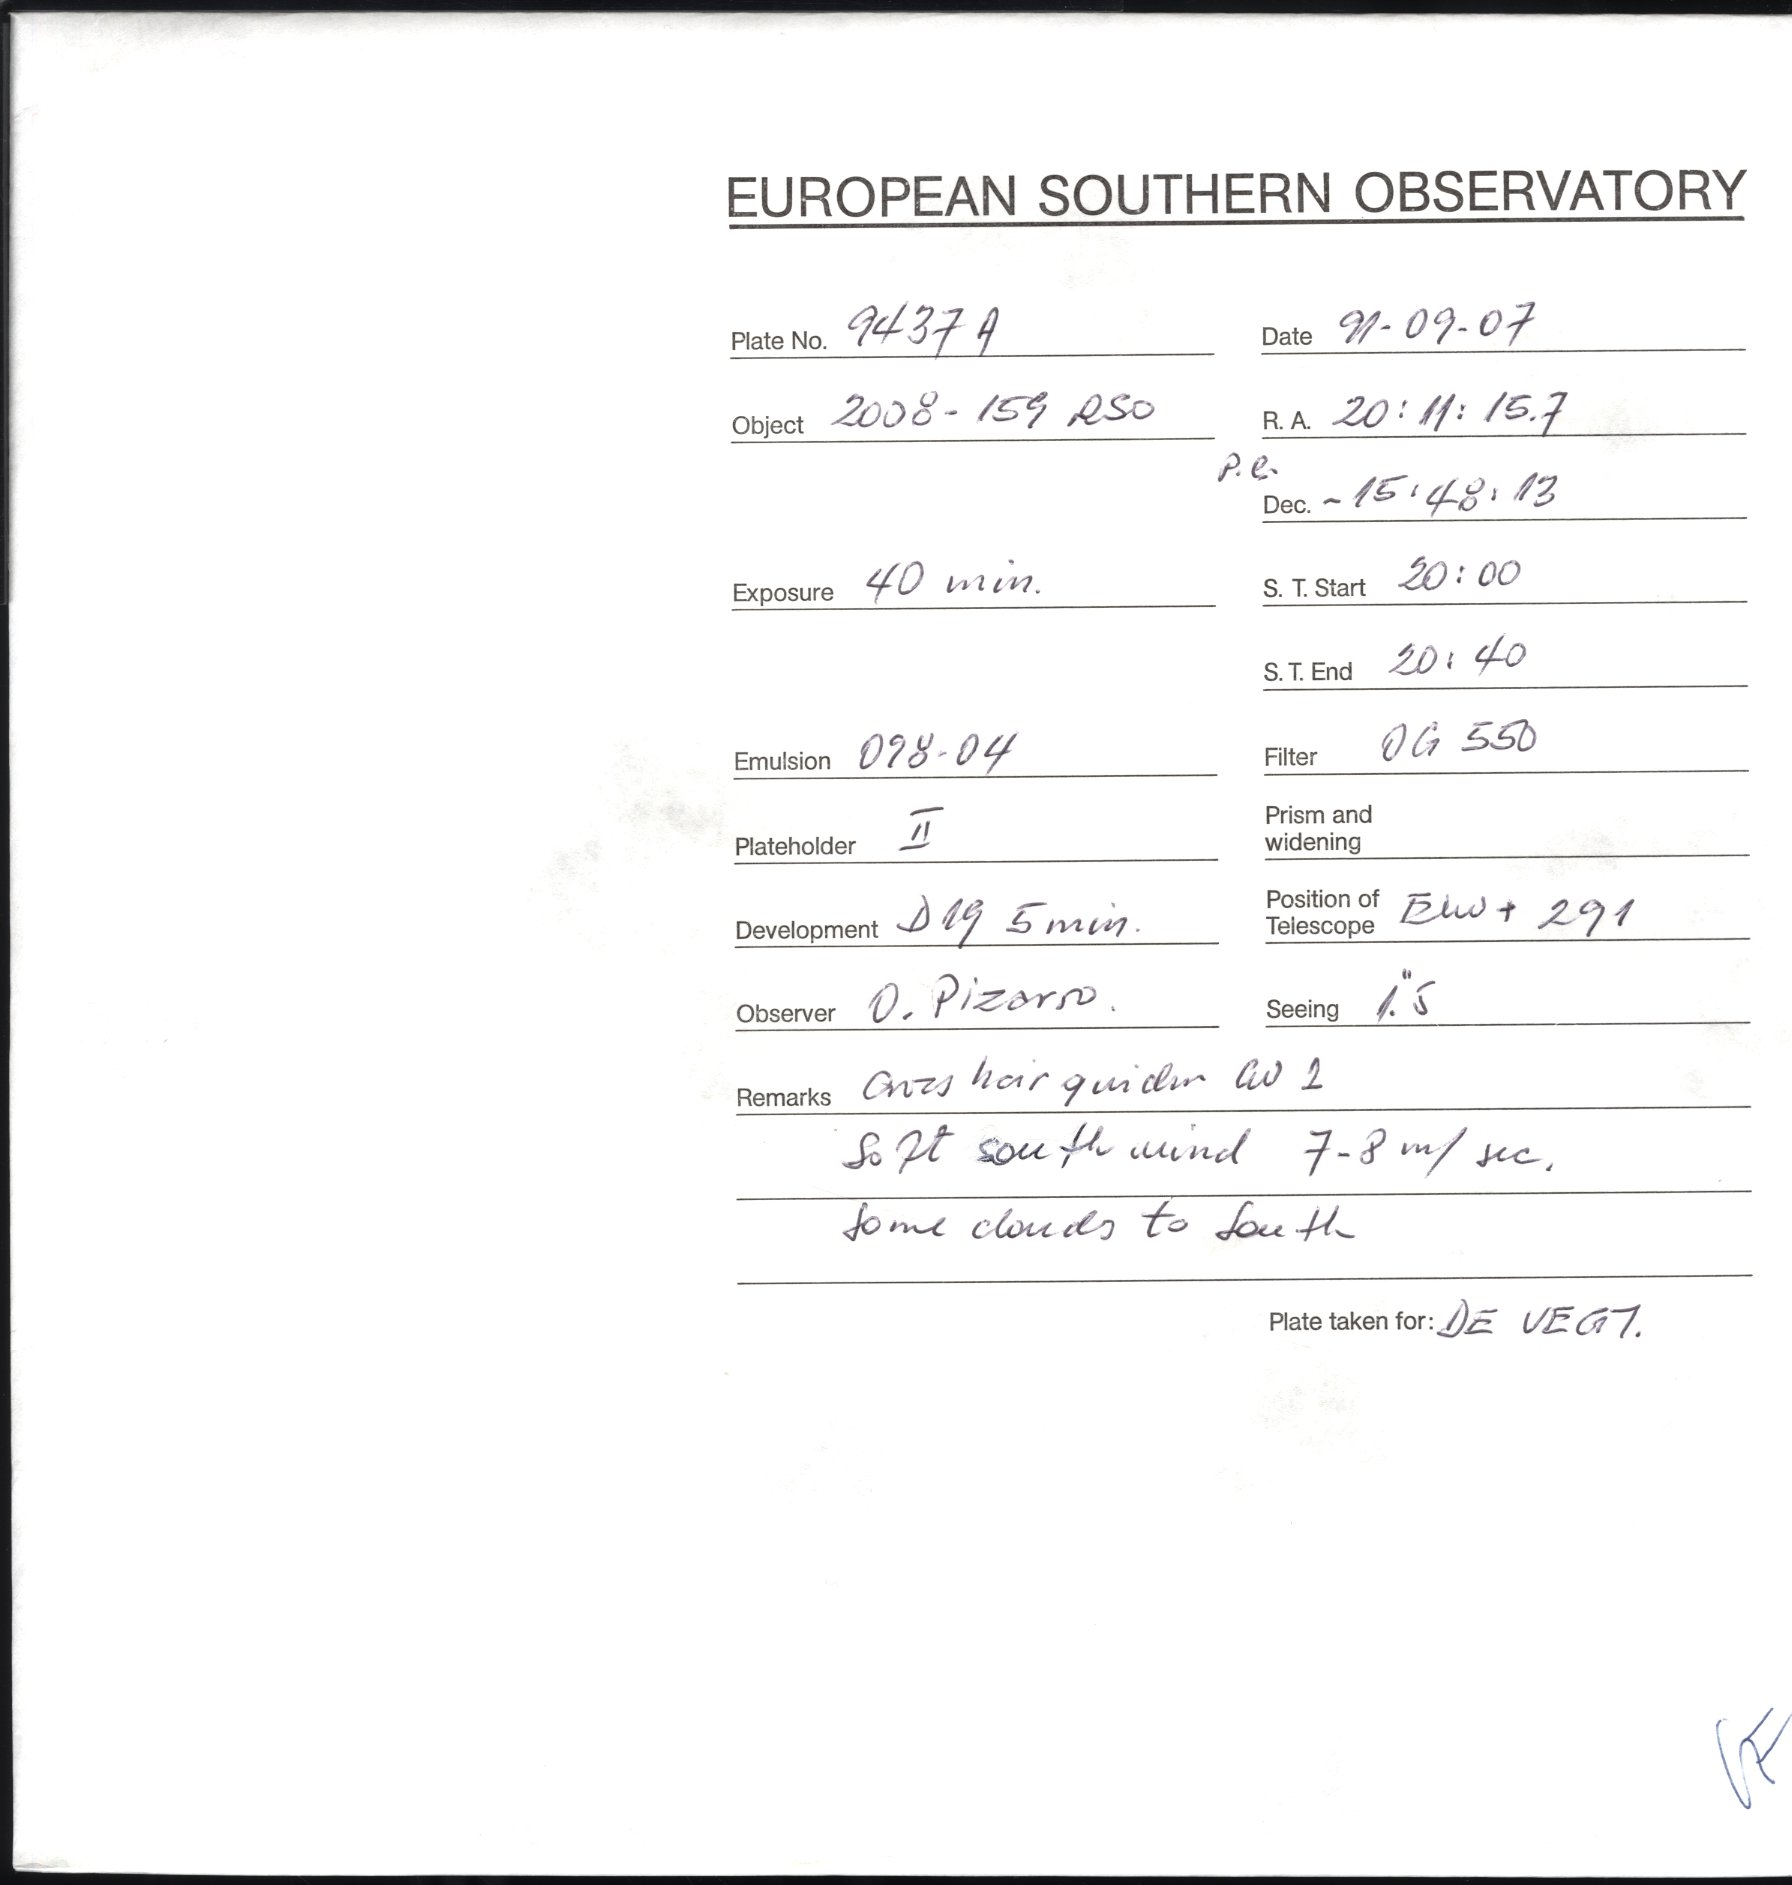 EUROPEAN SOUTHERN OBSERVATORY
Plate No. 9437 A Date 91-09-07
Object 2008-159 RSO R. A. 20:11:15.7
P.C.
Dec. -15:48:13
Exposure 40 min. S. T. Start 20:00
S. T. End 20:40
Emulsion 098-04 Filter OG 550
Plateholder II Prism and widening
Development D19 5 min. Position of Telescope + 291
Observer O. Pizarro. Seeing 1."5
Remarks Cross hair guider 1
Soft south wind 7-8 m/sec.
Some clouds to South
Plate taken for: DE VEGT.